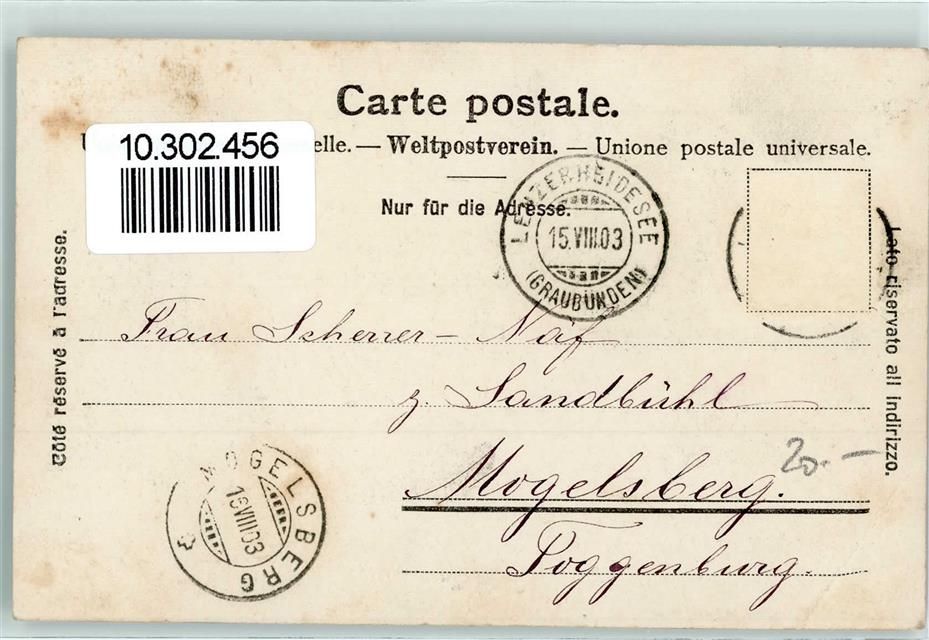 Carte postale.
10.302.456
elle. — Weltpostverein. — Unione postale universale.
Nur für die Adresse.
LENZERHEIDESEE
15.VIII.03
(GRAUBÜNDEN)
Côté réservé à l'adresse.
Lato riservato all indirizzo.
Frau Scherrer-Näf
z. Sandbühl
Mogelsberg.
20.-
Toggenburg.
MOGELSBERG
VIII 03